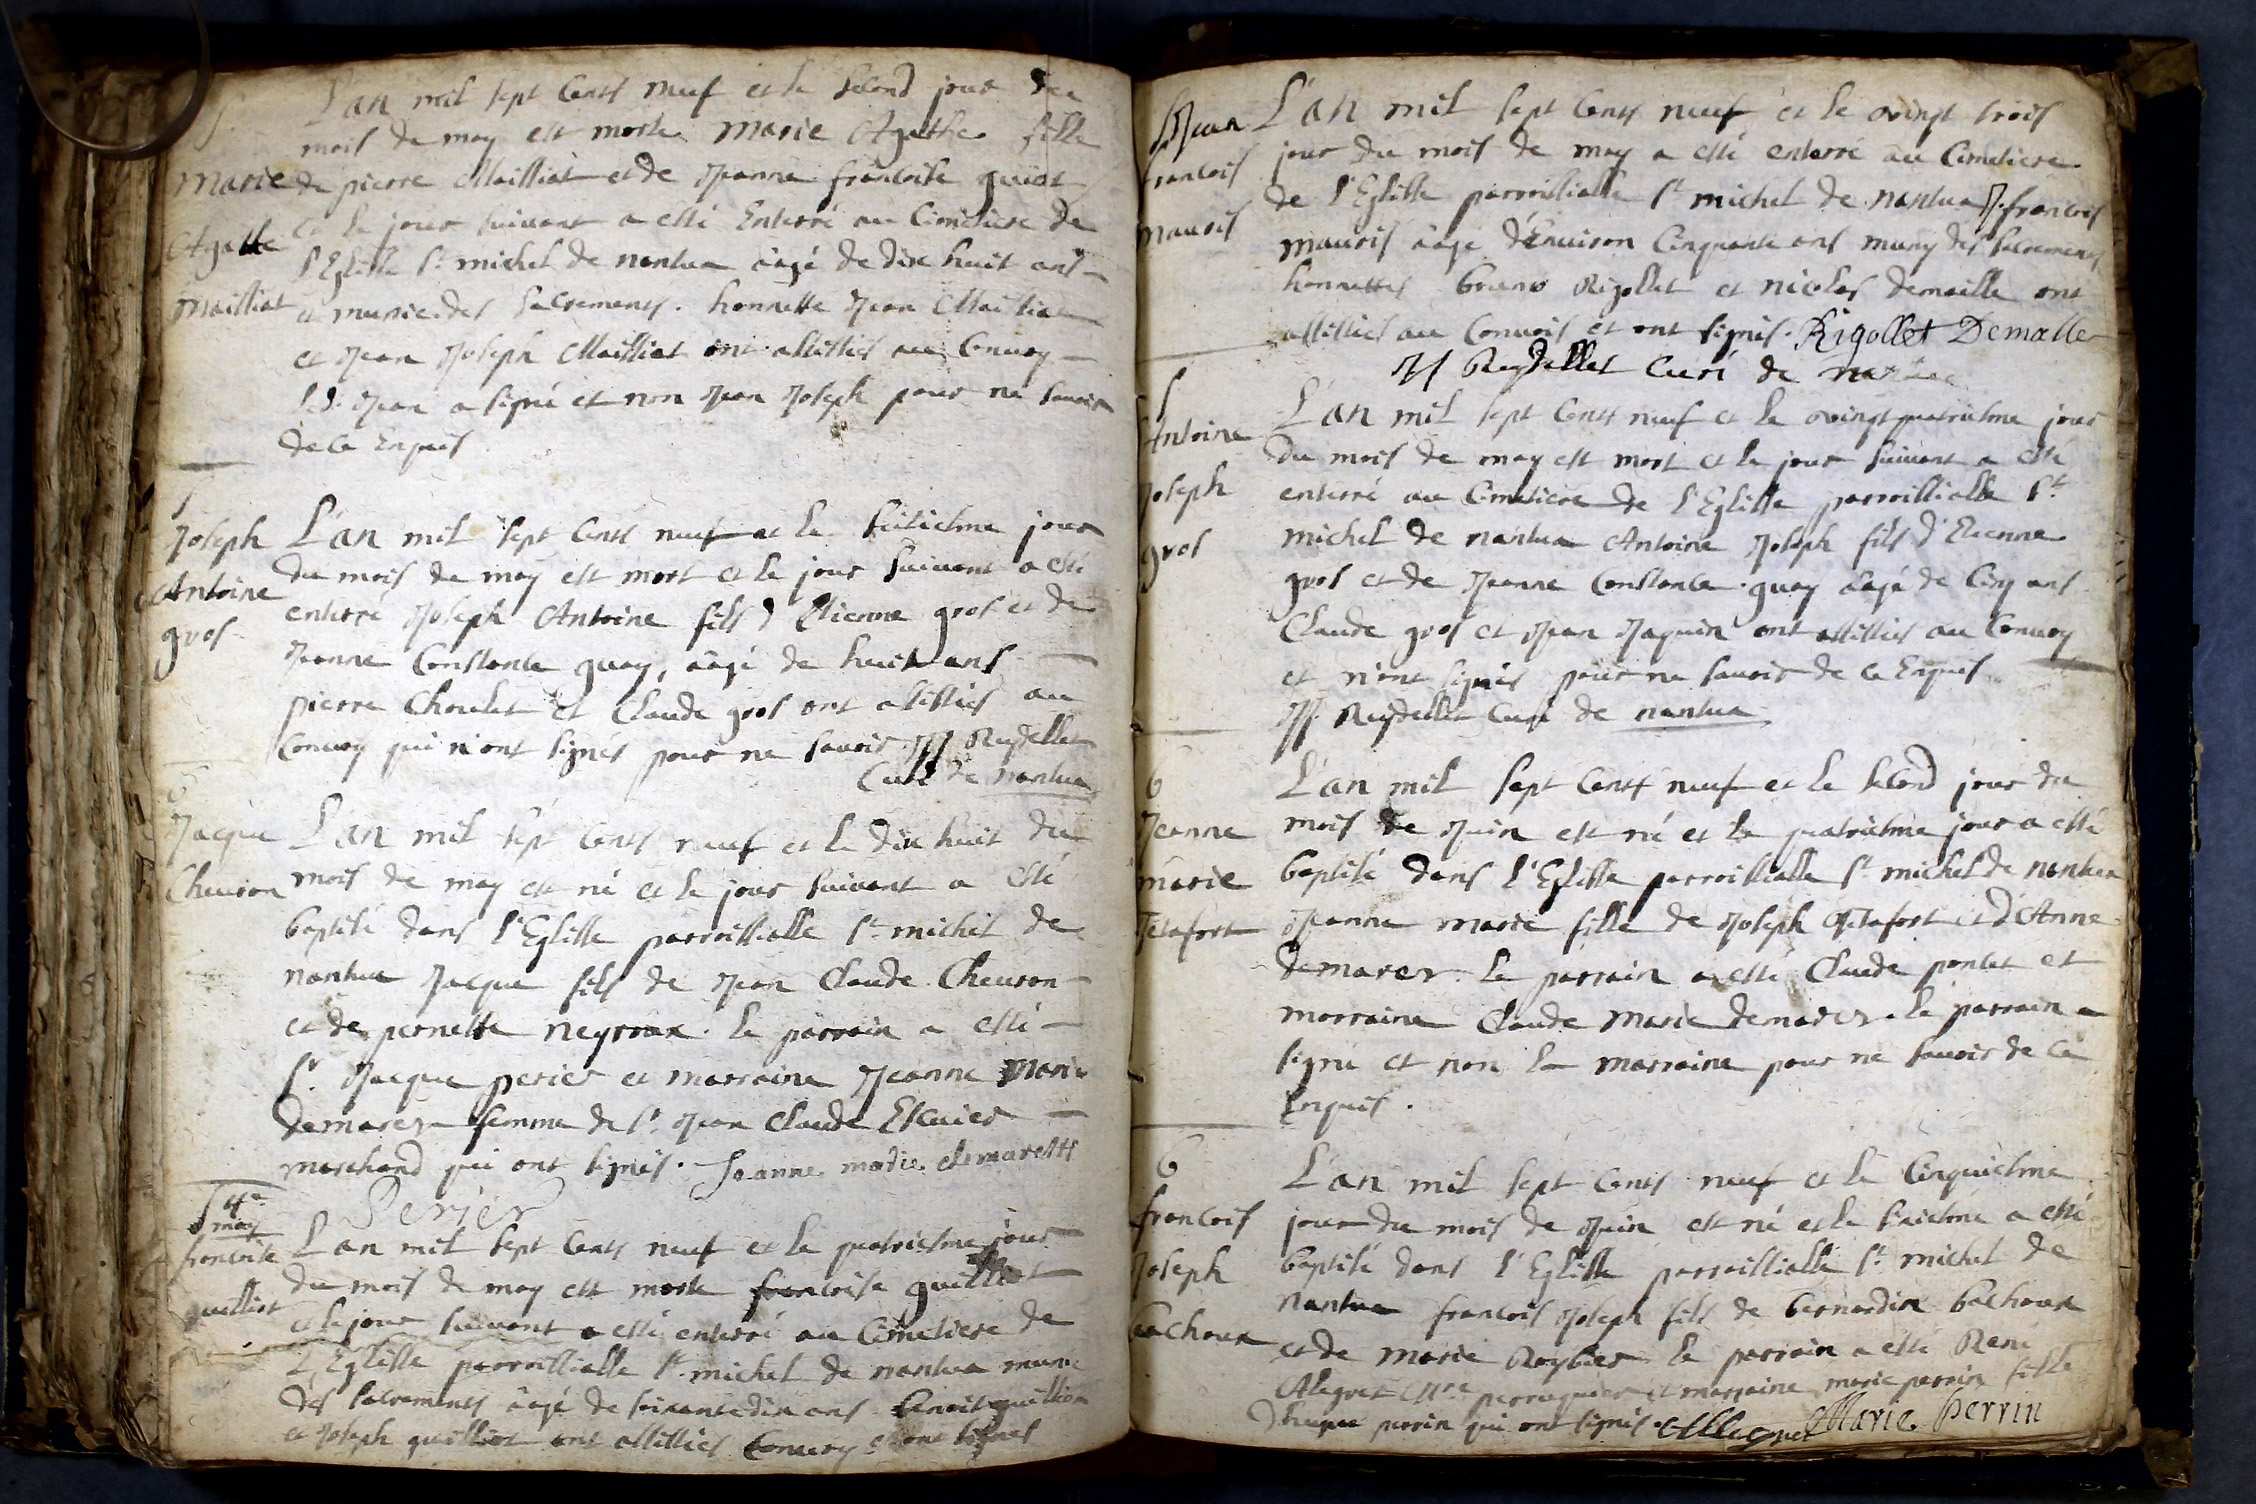 S
Marie
Agathe
Mailliat
L'an mil sept cents neuf et le second jour du
mois de may est morte Marie Agathe fille
de pierre Mailliat et de Jeanne francoise guiot
et le jour suivant a esté Enterré au Cimetiere de
l'Eglisse St michel de nantua aagé de dix huit ans
et munie des sacrements. honnette Jean Mailliat
et Jean Joseph Mailliat ont assistés au Convoy
led. Jean a signé et non Jean Joseph pour ne savoir
de ce Enquis
S
Joseph
Antoine
gros
L'an mil sept cents neuf et le huitiesme jour
du mois de may est mort et le jour suivant a esté
enterré Joseph Antoine fils d'Etienne gros et de
Jeanne Constance guay, aagé de huit ans
pierre Choulet et Claude gros ont assistés au
Convoy qui n'ont signés pour ne savoir. JJ Reydellet
Curé de nantua
6
Jacque
Cheuron
L'an mil sept cents neuf et le dix huit du
mois de may est né et le jour suivant a esté
baptisé dans l'Eglisse parroissialle St michel de
nantua Jacque fils de Jean Claude Cheuron
et de pernette neyroux. le parrain a esté
Sr. Jacque perier et marraine Jeanne Marie
demarez femme de Sr. Jean Claude Escuier
marchand qui ont signés. Jeanne marie demarests
Perier
S 4e
may
francoise
guilliot
L'an mil sept cents neuf et le quatriesme jour
du mois de may est morte francoise guilliot
et le jour suivant a esté enterré au Cimetiere de
L'Eglisse parroissialle St. michel de nantua munie
des sacrements aagé de soixante dix ans Benoit guilliot
et Joseph guilliot ont assistés Convoy et ont signés
S Jean
francois
mauris
L'an mil sept cents neuf et le vingt trois
jour du mois de may a esté enterré au Cimetiere
de l'Eglisse parroissialle St michel de nantua J. francois
mauris aagé d'Enuiron Cinquante ans muny des sacrements
honnettes bruno Rigollet et nicolas demaille ont
assistés au Convois et ont signés. Rigollet Demalle
JJ Reydellet Curé de nantua
S
Antoine
Joseph
gros
L'an mil sept cents neuf et le vingt quatriesme jour
du mois de may est mort et le jour suivant a esté
enterré au Cimetiere de l'Eglisse parroissialle St
michel de nantua Antoine Joseph fils d'Etienne
gros et de Jeanne Constance guay aagé de Cinq ans
Claude gros et Jean Jaquin ont assistés au Convoy
et n'ont signés pour ne savoir de ce Enquis
JJ. Reydellet Curé de nantua
6
Jeanne
marie
Jetafort
L'an mil sept cents neuf et le second jour du
mois de Juin est né et le quatriesme jour a esté
baptisé dans l'Eglisse parroissialle St michel de nantua
Jeanne marie fille de Joseph Jetafort et d'Anne
demarez le parrain a esté Claude ponlet et
marraine Claude Marie demarez. le parrain a
signé et non la marraine pour ne savoir de ce
Enquis.
6
francois
Joseph
bachoux
L'an mil sept cents neuf et le Cinquiesme
jour du mois de Juin est né et le sixiesme a esté
baptisé dans l'Eglisse parroissialle St. michel de
nantua francois Joseph fils de bernardin bachoux
et de marie Roybier le parrain a esté René
Alegret Mre perruquier et marraine marie perrin fille
Jacque perrin qui ont signés. Allegret Marie Perrin